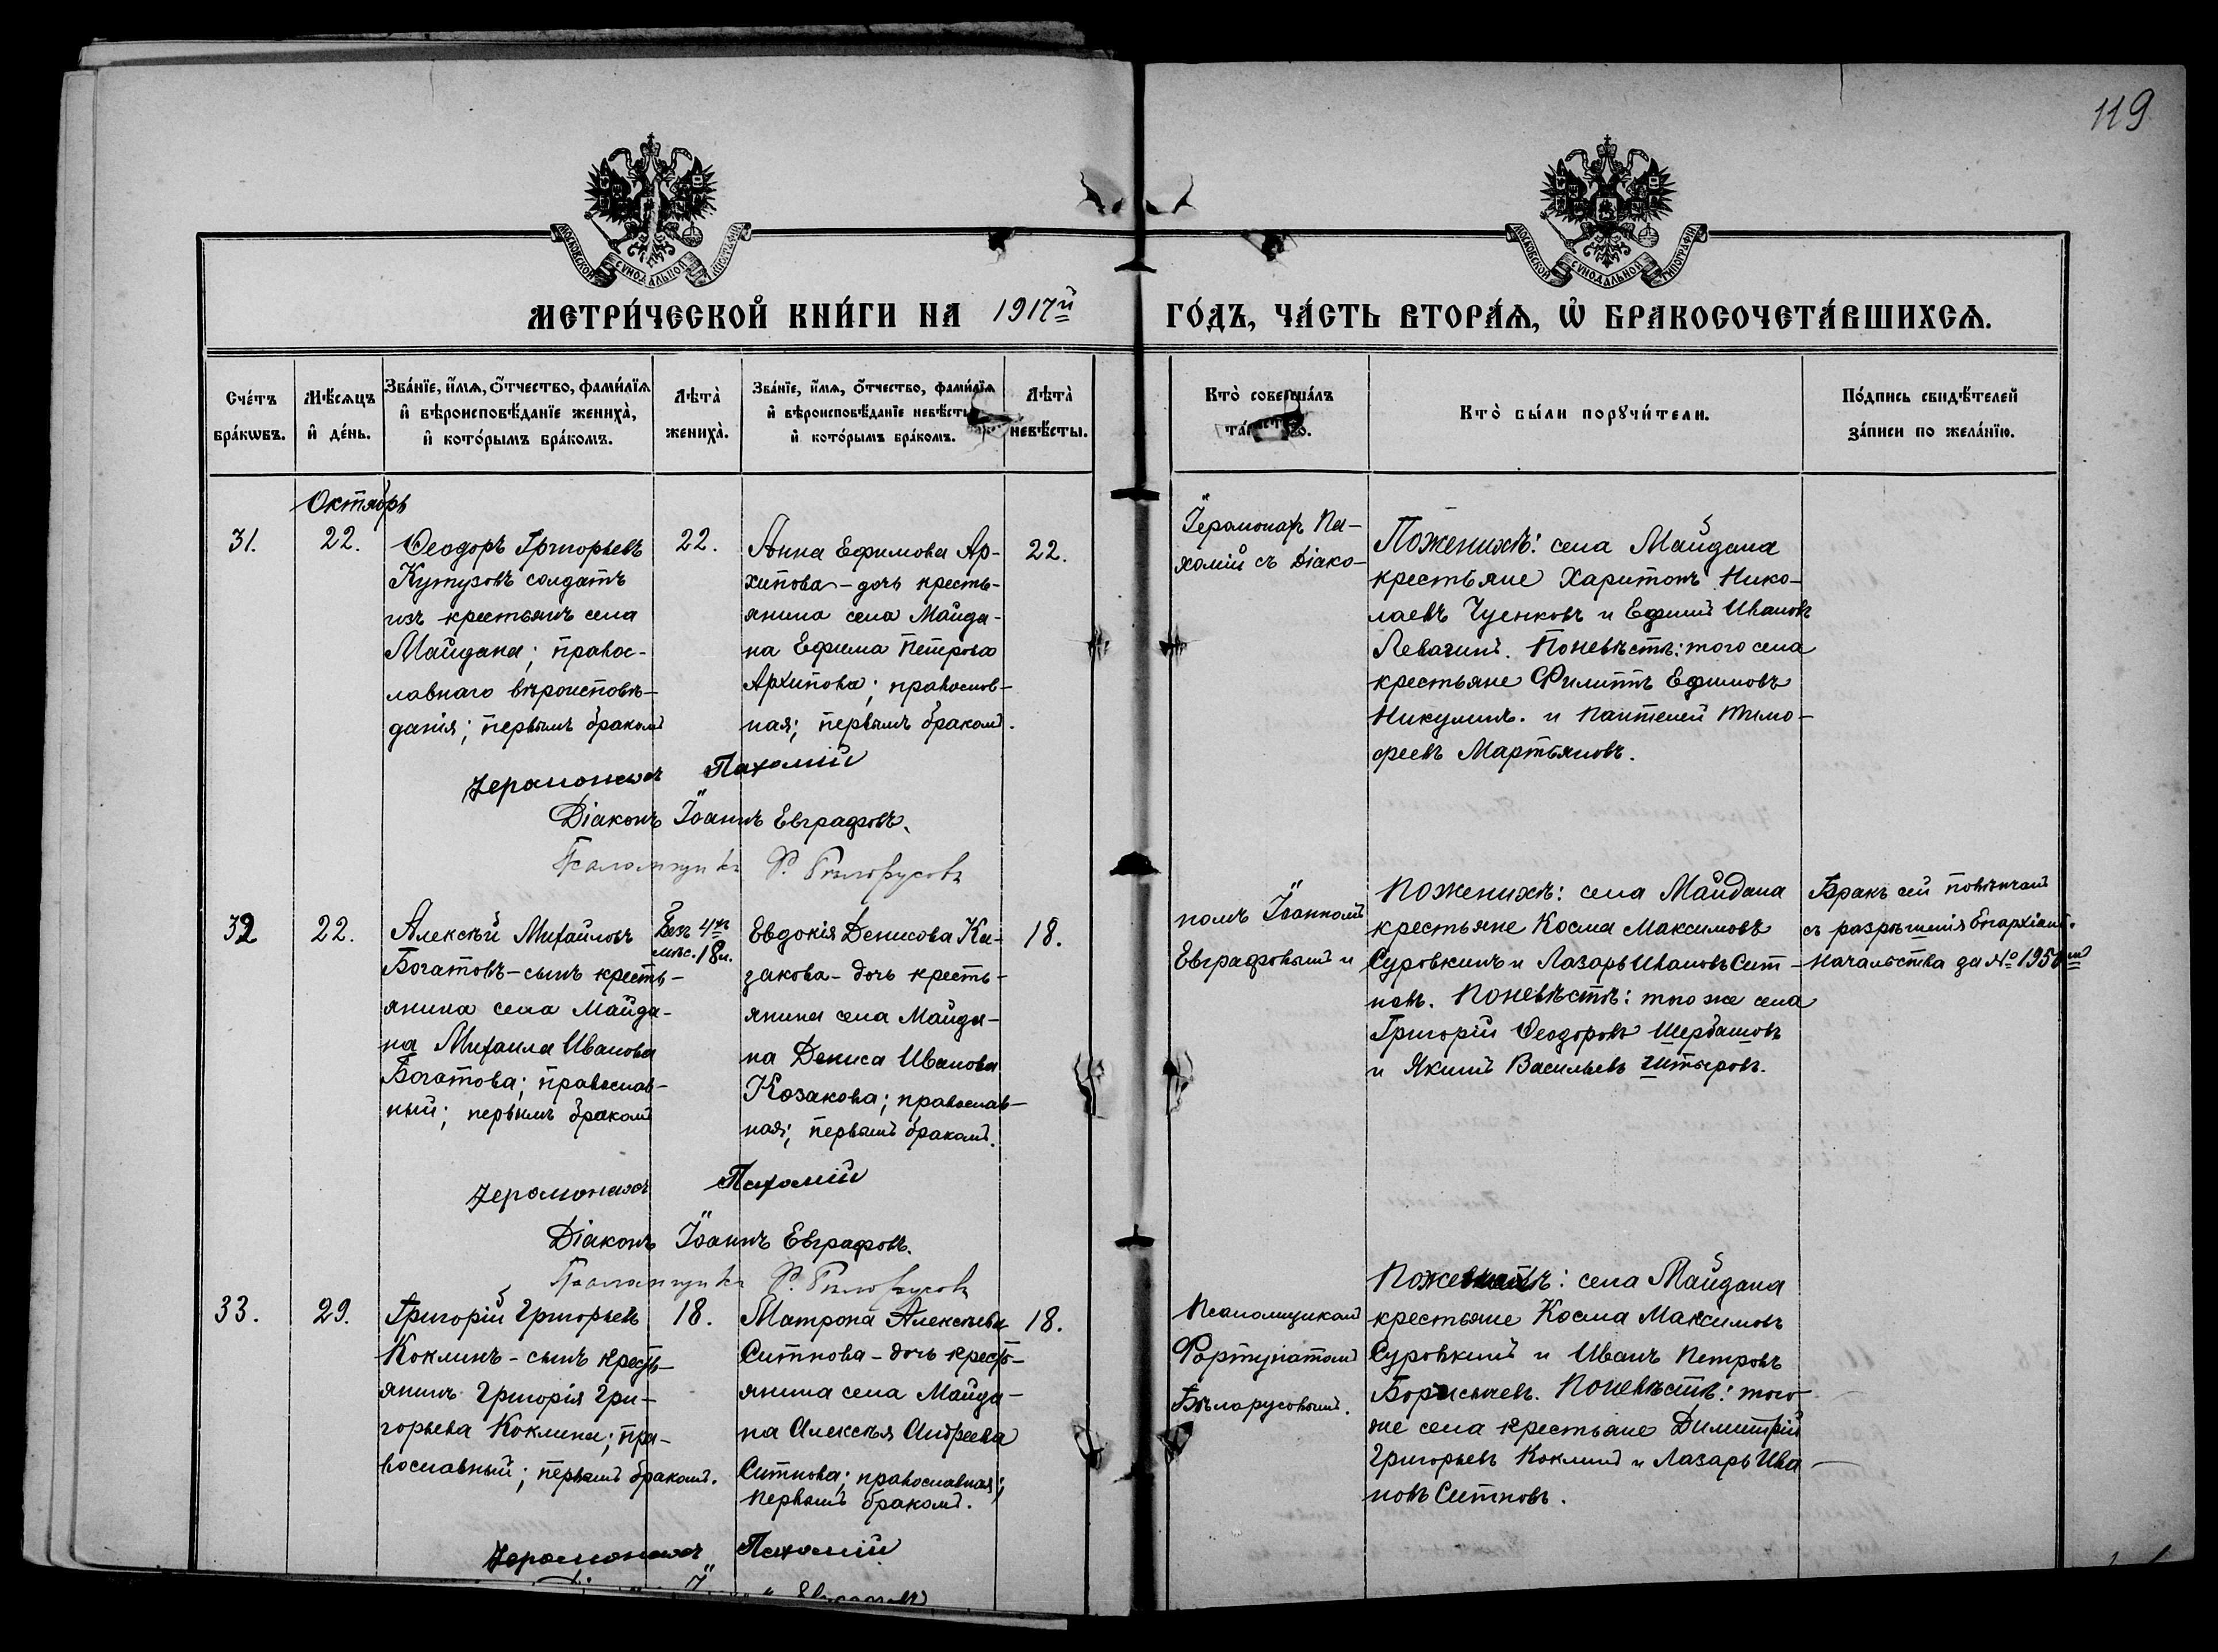 119
МОСКОВСКОЙ СУНОДАЛЬНОЙ ТИПОГРАФІИ
МОСКОВСКОЙ СУНОДАЛЬНОЙ ТИПОГРАФІИ
МЕТРИ́ЧЕСКОЙ КНИ́ГИ НА 1917й ГО́ДЪ, ЧА́СТЬ ВТОРА́Ѧ, Ѡ҆ БРАКОСОЧЕТА́ВШИХСѦ.
Сче́тъ бра́кѡвъ.
Мѣ́сѧцъ и҆ де́нь.
Зва́нїе, и҆́мѧ, ѻ҆́тчество, фами́лїѧ
и҆ вѣроисповѣ́данїе жениха̀,
и҆ кото́рымъ бра́комъ.
Лѣта̀ жениха̀.
Зва́нїе, и҆́мѧ, ѻ҆́тчество, фами́лїѧ
и҆ вѣроисповѣ́данїе невѣ́сты
и҆ кото́рымъ бра́комъ.
Лѣта̀ невѣ́сты.
Кто̀ соверша́лъ
та́инство.
Кто̀ бы́ли порꙋчи́тели.
По́дпись свидѣ́телей
за́писи по жела́нїю.
Октябрь
31.
22.
Ѳеодоръ Григорьевъ
Кутузовъ солдатъ
изъ крестьянъ села
Майдана; правос-
лавнаго вѣроисповѣ-
данія; первымъ бракомъ
22.
Анна Ефимова Ар-
хипова - дочь кресть-
янина села Майда-
на Ефима Петрова
Архипова; православ-
ная; первымъ бракомъ.
22.
Іеромонахъ Па-
хомій съ Діако-
По женихѣ: села Майдана
крестьяне Харитонъ Нико-
лаевъ Чуенковъ и Ефимъ Ивановъ
Левагинъ. По невѣстѣ: того села
крестьяне Филиппъ Ефимовъ
Никулинъ. и Пантелей Тимо-
феевъ Мартьяновъ.
Іеромонахъ Пахомій
Діаконъ Іоаннъ Евграфовъ.
Псаломщикъ Ф. Бѣлорусовъ
32
22.
Алексѣй Михайловъ
Богатовъ - сынъ кресть-
янина села Майда-
на Михаила Иванова
Богатова; православ-
ный; первымъ бракомъ
Безъ 4хъ
мѣс. 18 л.
Евдокія Денисова Ка-
закова - дочь кресть-
янина села Майда-
на Дениса Иванова
Козакова; православ-
ная; первымъ бракомъ.
18.
номъ Іоанномъ
Евграфовымъ и
По женихѣ: села Майдана
крестьяне Косма Максимовъ
Суровкинъ и Лазарь Ивановъ Сит-
новъ. По невѣстѣ: того же села
Григорій Ѳеодоровъ Щербашовъ
и Якимъ Васильевъ Штыровъ.
Бракъ сей повѣнчанъ
съ разрѣшенія Епархіальн.
Начальства за №
Іеромонахъ Пахомій
Діаконъ Іоаннъ Евграфовъ.
Псаломщикъ Ф. Бѣлорусовъ
33.
29.
Григорій Григорьевъ
Коклинъ - сынъ кресть-
янинъ Григорія Гри-
горьева Коклина; пра-
вославный; первымъ бракомъ.
18.
Матрона Алексѣева
Ситнова - дочь кресть-
янина села Майда-
на Алексѣя Андреева
Ситнова; православная;
первымъ бракомъ.
18.
Псаломщикомъ
Фортунатомъ
Бѣларусовымъ.
По женихѣ: села Майдана
крестьяне Косма Максимовъ
Суровкинъ и Иванъ Петровъ
Борисычевъ. По невѣстѣ: того
же села крестьяне Димитрій
Григорьевъ Коклинъ и Лазарь Ива-
новъ Ситновъ.
Іеромонахъ Пахомій